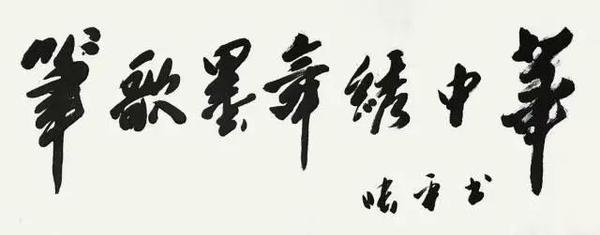 筆歌墨舞綉中華
平书